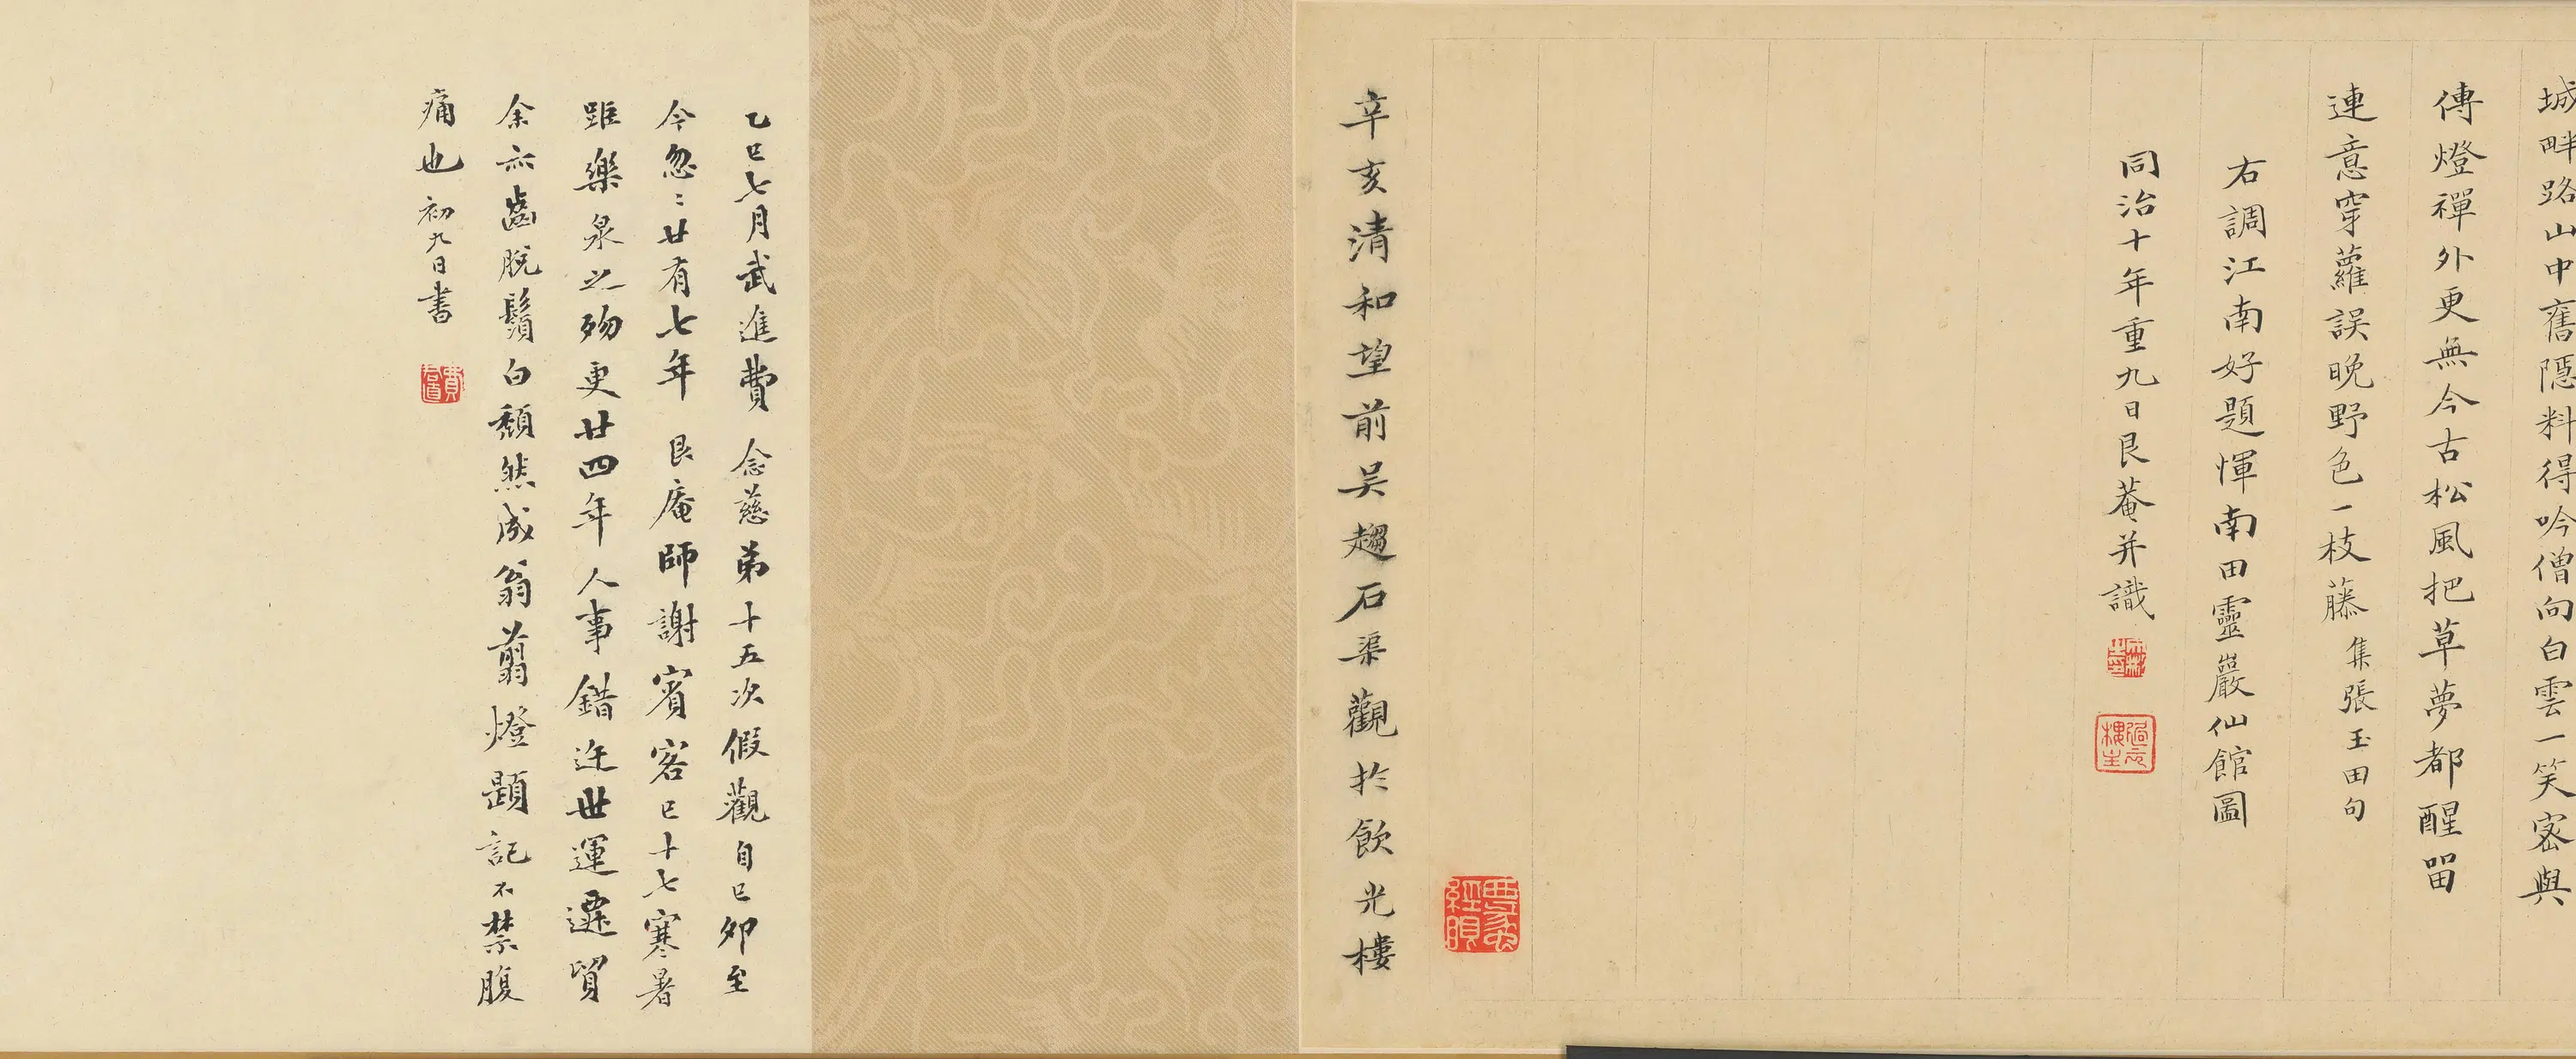 城畔路山中舊隱料得吟僧向白雲一笑密與
傳燈禪外更無今古松風把草夢都醒留
連意穿蘿誤晚野色一枝藤 集張玉田句
右調江南好題惲南田靈巖仙館圖
同治十年重九日艮菴并識
辛亥清和望前吴趨石渠觀於飲光樓
乙巳七月武進費念慈弟十五次假觀自己卯至
今忽〻廿有七年 艮庵師謝賓客已十七寒暑
距樂泉之歾更廿四年人事錯迕世運遷貿
余亦齒脫鬚白頹然成翁翦燈題記不禁腹
痛也 初九日書